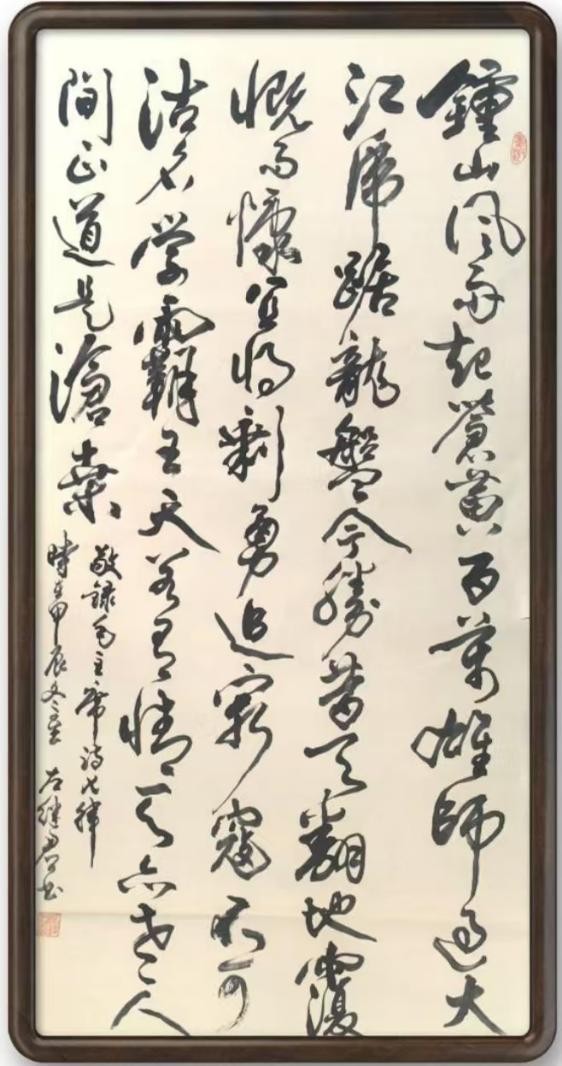 鍾山風雨起蒼黃百萬雄師過大
江虎踞龍盤今勝昔天翻地覆
慨而慷宜將剩勇追窮寇不可
沽名學霸王天若有情天亦老人
間正道是滄桑
敬錄毛主席詩七律
時在甲辰冬至 左继君书